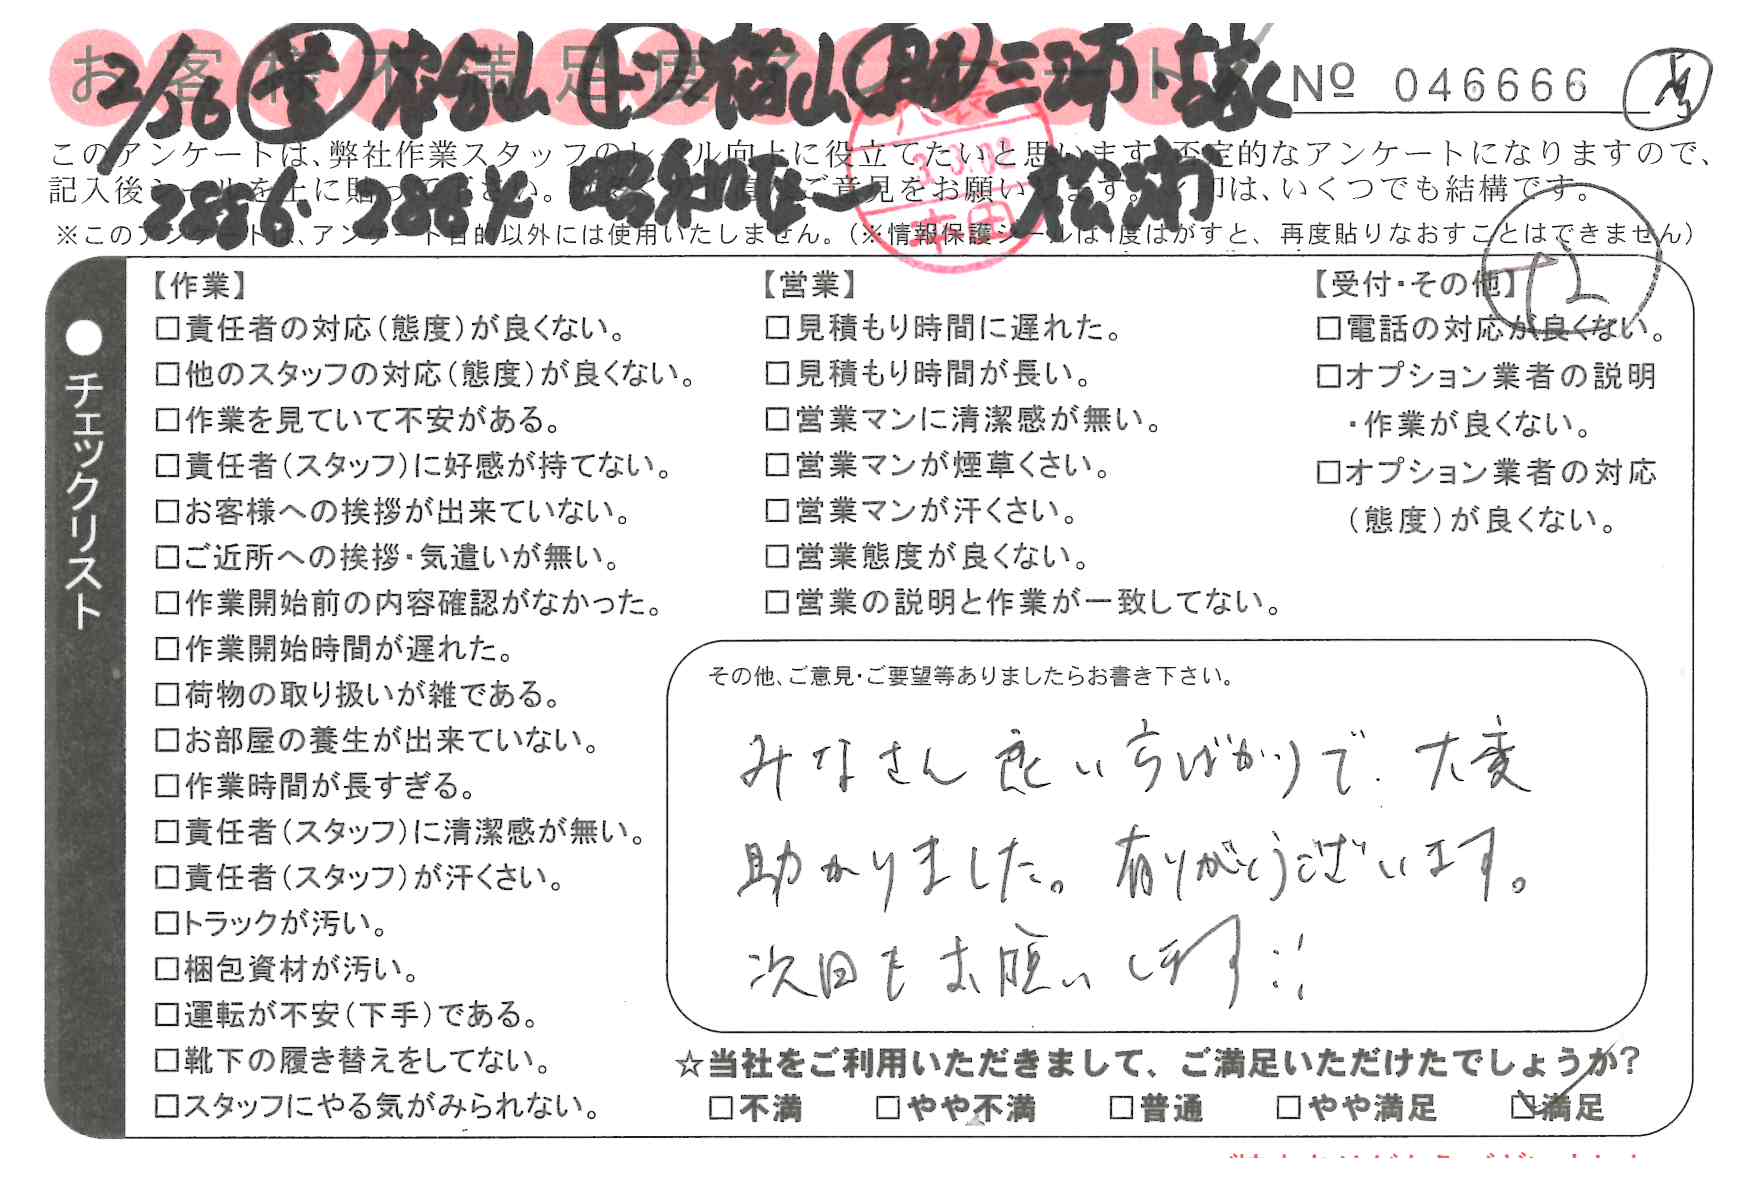 お客様不満足度アンケート
№ 046666
2/26 本山 三浦
このアンケートは、弊社作業スタッフのレベル向上に役立てたいと思います。否定的なアンケートになりますので、
記入後シールを上に貼って下さい。ご意見をお願いします。は、いくつでも結構です。
2886. 2884 昭和 松浦
※このアンケートは、アンケート目的以外には使用いたしません。(※情報保護シールは1度はがすと、再度貼りなおすことはできません)
3.3.02
●チェックリスト
【作業】
□責任者の対応(態度)が良くない。
□他のスタッフの対応(態度)が良くない。
□作業を見ていて不安がある。
□責任者(スタッフ)に好感が持てない。
□お客様への挨拶が出来ていない。
□ご近所への挨拶・気遣いが無い。
□作業開始前の内容確認がなかった。
□作業開始時間が遅れた。
□荷物の取り扱いが雑である。
□お部屋の養生が出来ていない。
□作業時間が長すぎる。
□責任者(スタッフ)に清潔感が無い。
□責任者(スタッフ)が汗くさい。
□トラックが汚い。
□梱包資材が汚い。
□運転が不安(下手)である。
□靴下の履き替えをしてない。
□スタッフにやる気がみられない。
【営業】
□見積もり時間に遅れた。
□見積もり時間が長い。
□営業マンに清潔感が無い。
□営業マンが煙草くさい。
□営業マンが汗くさい。
□営業態度が良くない。
□営業の説明と作業が一致してない。
【受付・その他】
□電話の対応が良くない。
□オプション業者の説明
・作業が良くない。
□オプション業者の対応
(態度)が良くない。
その他、ご意見・ご要望等ありましたらお書き下さい。
みなさん良い方ばかりで、大変
助かりました。有りがとうございます。
次回もお願いします!!
☆当社をご利用いただきまして、ご満足いただけたでしょうか?
□不満 □やや不満 □普通 □やや満足 ☑満足